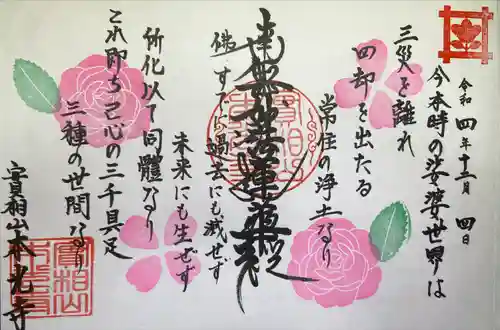 令和四年十二月四日
今本時の娑婆世界は
三災を離れ
四却を出たる
常住の浄土なり
南無妙法蓮華経
佛、すでに過去にも滅せず
未来にも生ぜず
所化以て同體なり
これ即ち己心の三千具足
三種の世間なり
實相山本光寺